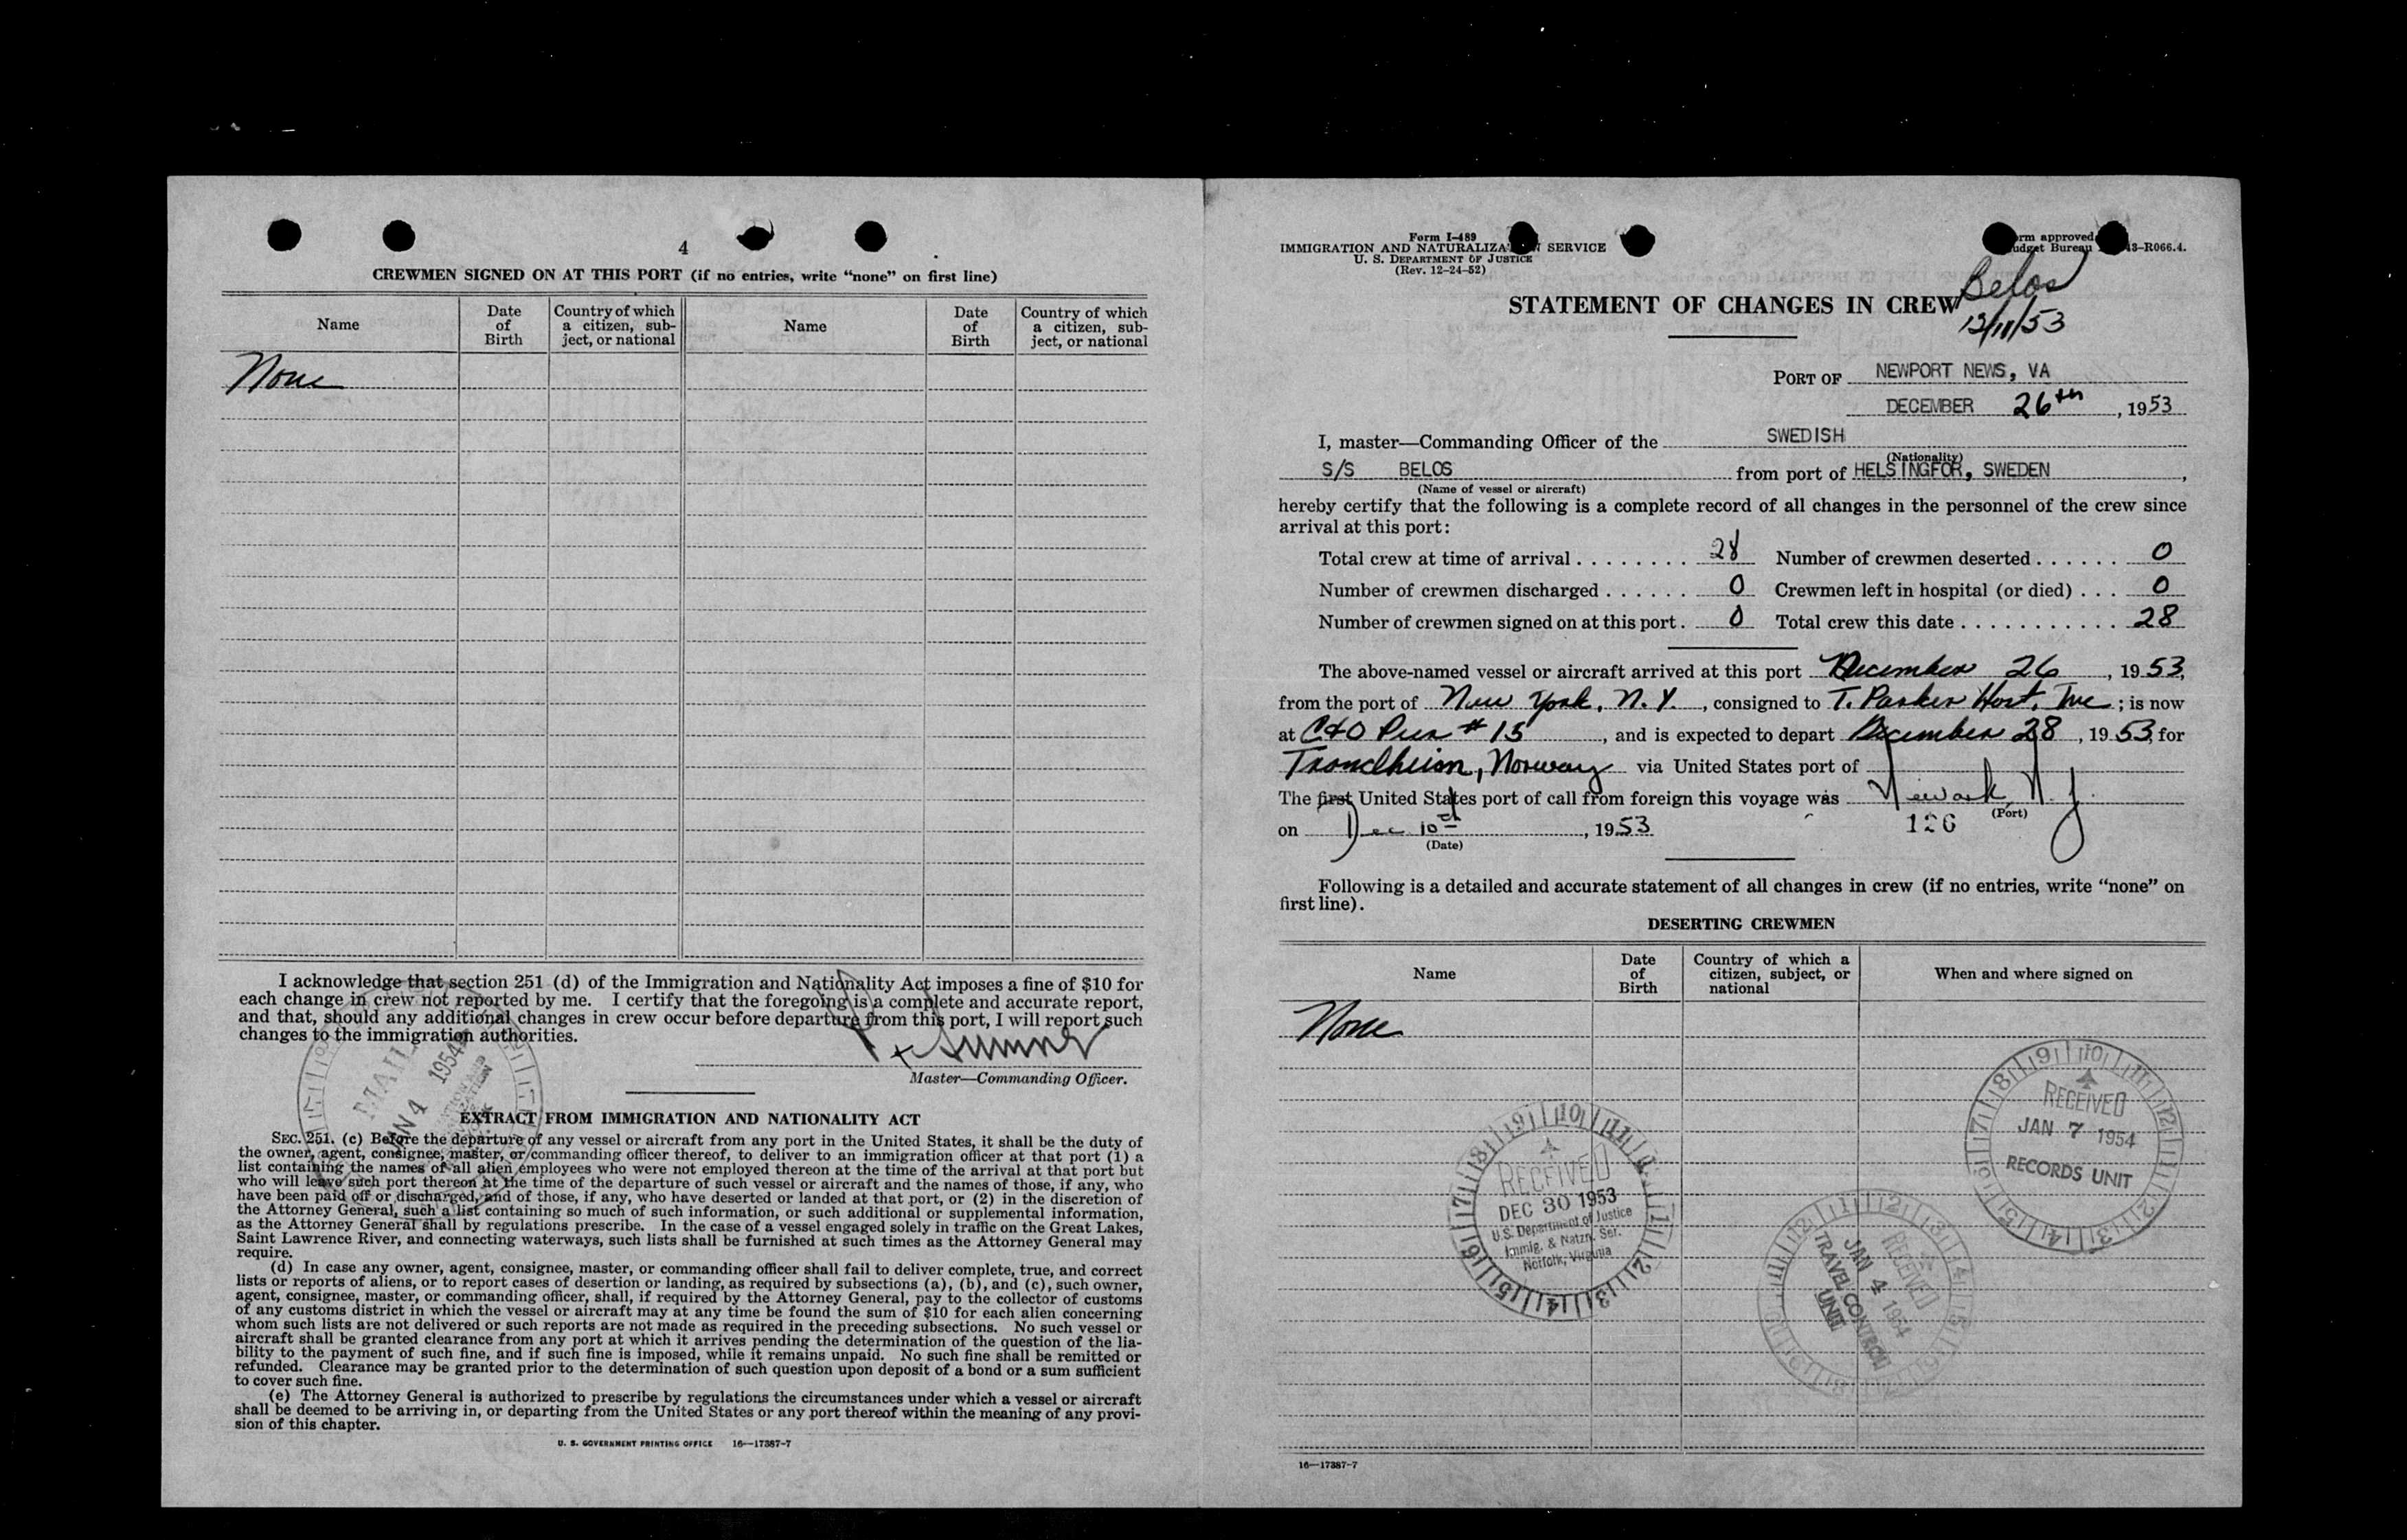 4
CREWMEN SIGNED ON AT THIS PORT (if no entries, write “none” on first line)
Name
Date of Birth
Country of which a citizen, sub-ject, or national
Name
Date of Birth
Country of which a citizen, sub-ject, or national
None
I acknowledge that section 251 (d) of the Immigration and Nationality Act imposes a fine of $10 for
each change in crew not reported by me. I certify that the foregoing is a complete and accurate report,
and that, should any additional changes in crew occur before departure from this port, I will report such
changes to the immigration authorities.
Master—Commanding Officer.
MAIL
JAN 4 1954
EXTRACT FROM IMMIGRATION AND NATIONALITY ACT
SEC. 251. (c) Before the departure of any vessel or aircraft from any port in the United States, it shall be the duty of
the owner, agent, consignee, master, or commanding officer thereof, to deliver to an immigration officer at that port (1) a
list containing the names of all alien employees who were not employed thereon at the time of the arrival at that port but
who will leave such port thereon at the time of the departure of such vessel or aircraft and the names of those, if any, who
have been paid off or discharged, and of those, if any, who have deserted or landed at that port, or (2) in the discretion of
the Attorney General, such a list containing so much of such information, or such additional or supplemental information,
as the Attorney General shall by regulations prescribe. In the case of a vessel engaged solely in traffic on the Great Lakes,
Saint Lawrence River, and connecting waterways, such lists shall be furnished at such times as the Attorney General may
require.
(d) In case any owner, agent, consignee, master, or commanding officer shall fail to deliver complete, true, and correct
lists or reports of aliens, or to report cases of desertion or landing, as required by subsections (a), (b), and (c), such owner,
agent, consignee, master, or commanding officer, shall, if required by the Attorney General, pay to the collector of customs
of any customs district in which the vessel or aircraft may at any time be found the sum of $10 for each alien concerning
whom such lists are not delivered or such reports are not made as required in the preceding subsections. No such vessel or
aircraft shall be granted clearance from any port at which it arrives pending the determination of the question of the lia-
bility to the payment of such fine, and if such fine is imposed, while it remains unpaid. No such fine shall be remitted or
refunded. Clearance may be granted prior to the determination of such question upon deposit of a bond or a sum sufficient
to cover such fine.
(e) The Attorney General is authorized to prescribe by regulations the circumstances under which a vessel or aircraft
shall be deemed to be arriving in, or departing from the United States or any port thereof within the meaning of any provi-
sion of this chapter.
U. S. GOVERNMENT PRINTING OFFICE 16—17387-7
Form I-489
IMMIGRATION AND NATURALIZATION SERVICE
U. S. DEPARTMENT OF JUSTICE
(Rev. 12-24-52)
Form approved
Budget Bureau 43-R066.4.
Belos
12/11/53
STATEMENT OF CHANGES IN CREW
PORT OF NEWPORT NEWS, VA
DECEMBER 26th, 1953
I, master—Commanding Officer of the SWEDISH
(Nationality)
S/S BELOS from port of HELSINGFOR, SWEDEN,
(Name of vessel or aircraft)
hereby certify that the following is a complete record of all changes in the personnel of the crew since
arrival at this port:
Total crew at time of arrival . . . . . . . . 28 Number of crewmen deserted . . . . . . 0
Number of crewmen discharged . . . . . . 0 Crewmen left in hospital (or died) . . . 0
Number of crewmen signed on at this port . 0 Total crew this date . . . . . . . . . . . 28
The above-named vessel or aircraft arrived at this port December 26, 1953,
from the port of New York, N.Y., consigned to T. Parker Host, Inc; is now
at C&O Pier # 15, and is expected to depart December 28, 1953, for
Trondheim, Norway via United States port of
The first United States port of call from foreign this voyage was Newark, N.J.
(Port)
on Dec 10th, 1953
126
(Date)
Following is a detailed and accurate statement of all changes in crew (if no entries, write “none” on
first line).
DESERTING CREWMEN
Name
Date of Birth
Country of which a citizen, subject, or national
When and where signed on
None
RECEIVED
DEC 30 1953
U.S. Department of Justice
Immig. & Natzn. Ser.
Norfolk, Virginia
RECEIVED
JAN 7 1954
RECORDS UNIT
RECEIVED
JAN 4 1954
TRAVEL CONTROL
UNIT
16—17387-7